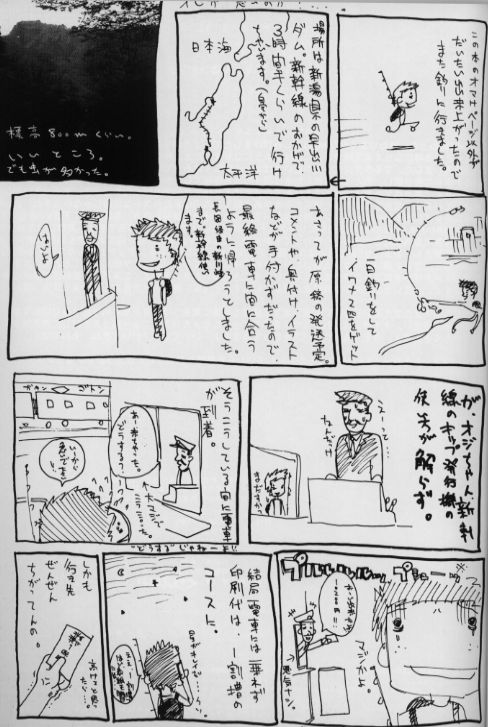 この本のオマケページ以外が
だいたい出来上がったので
また釣りに行きました。
場所は新潟県の早出川
ダム。新幹線のおかげで
3時間半くらいで行け
ちゃいます。
日本海
太平洋
標高800mくらい。
いいところ。
でも虫が多かった。
一日釣りをして
イワナ2匹をゲット
あさってが原稿の発送予定。
コメントや奥付け、イラスト
などが手付かずだったので、
最終電車に間に合う
ように帰ろうとしました。
まで、新幹線使い
ます。
はいよ
が、オジちゃん、新幹
線のキップ発行機の
使い方が解らず。
えーっと…
なんだっけ
まだすか
そうこうしている間に電車
が到着。
ガタン
ゴトン
あー来ちゃった。
どうするう?
いいから
急いで
「どうする」じゃねーよ!!
プルルルル…
プシュー
マジかよ。
悪気ナシ。
結局電車には乗れず
印刷代は、1割増の
コースに。
星がキレイだ…
しかも
行き先
ぜんぜん
ちがってんの。
おけ?と思
たら…